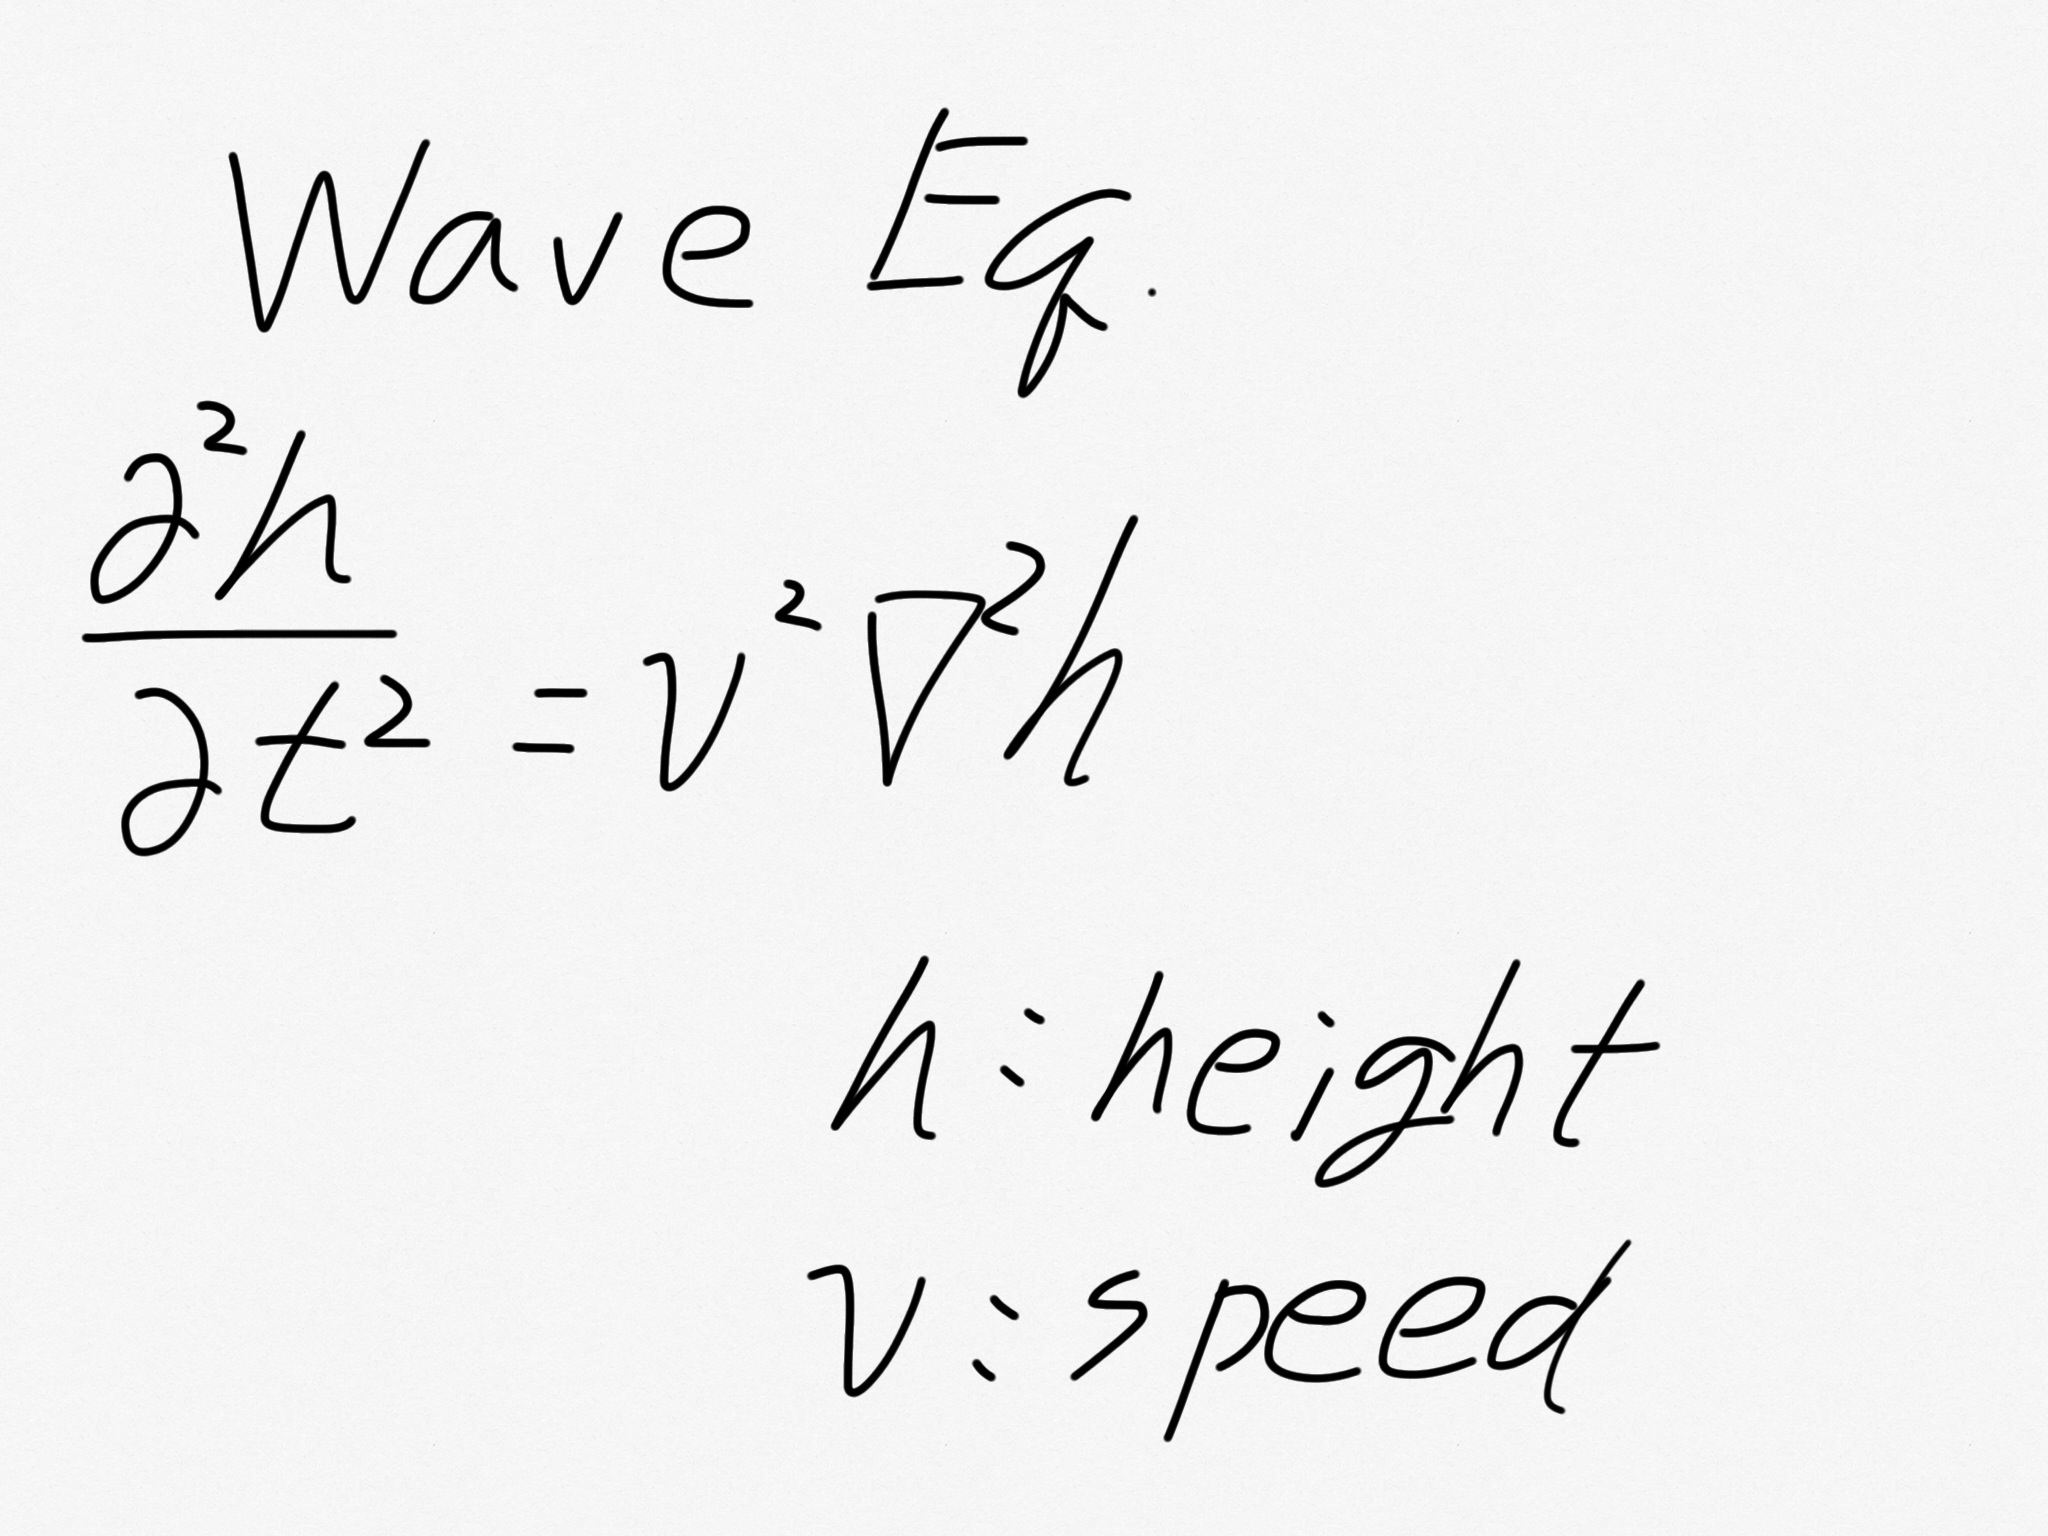 Wave Eq.
∂²h/∂t² = v² ∇²h
h: height
v: speed